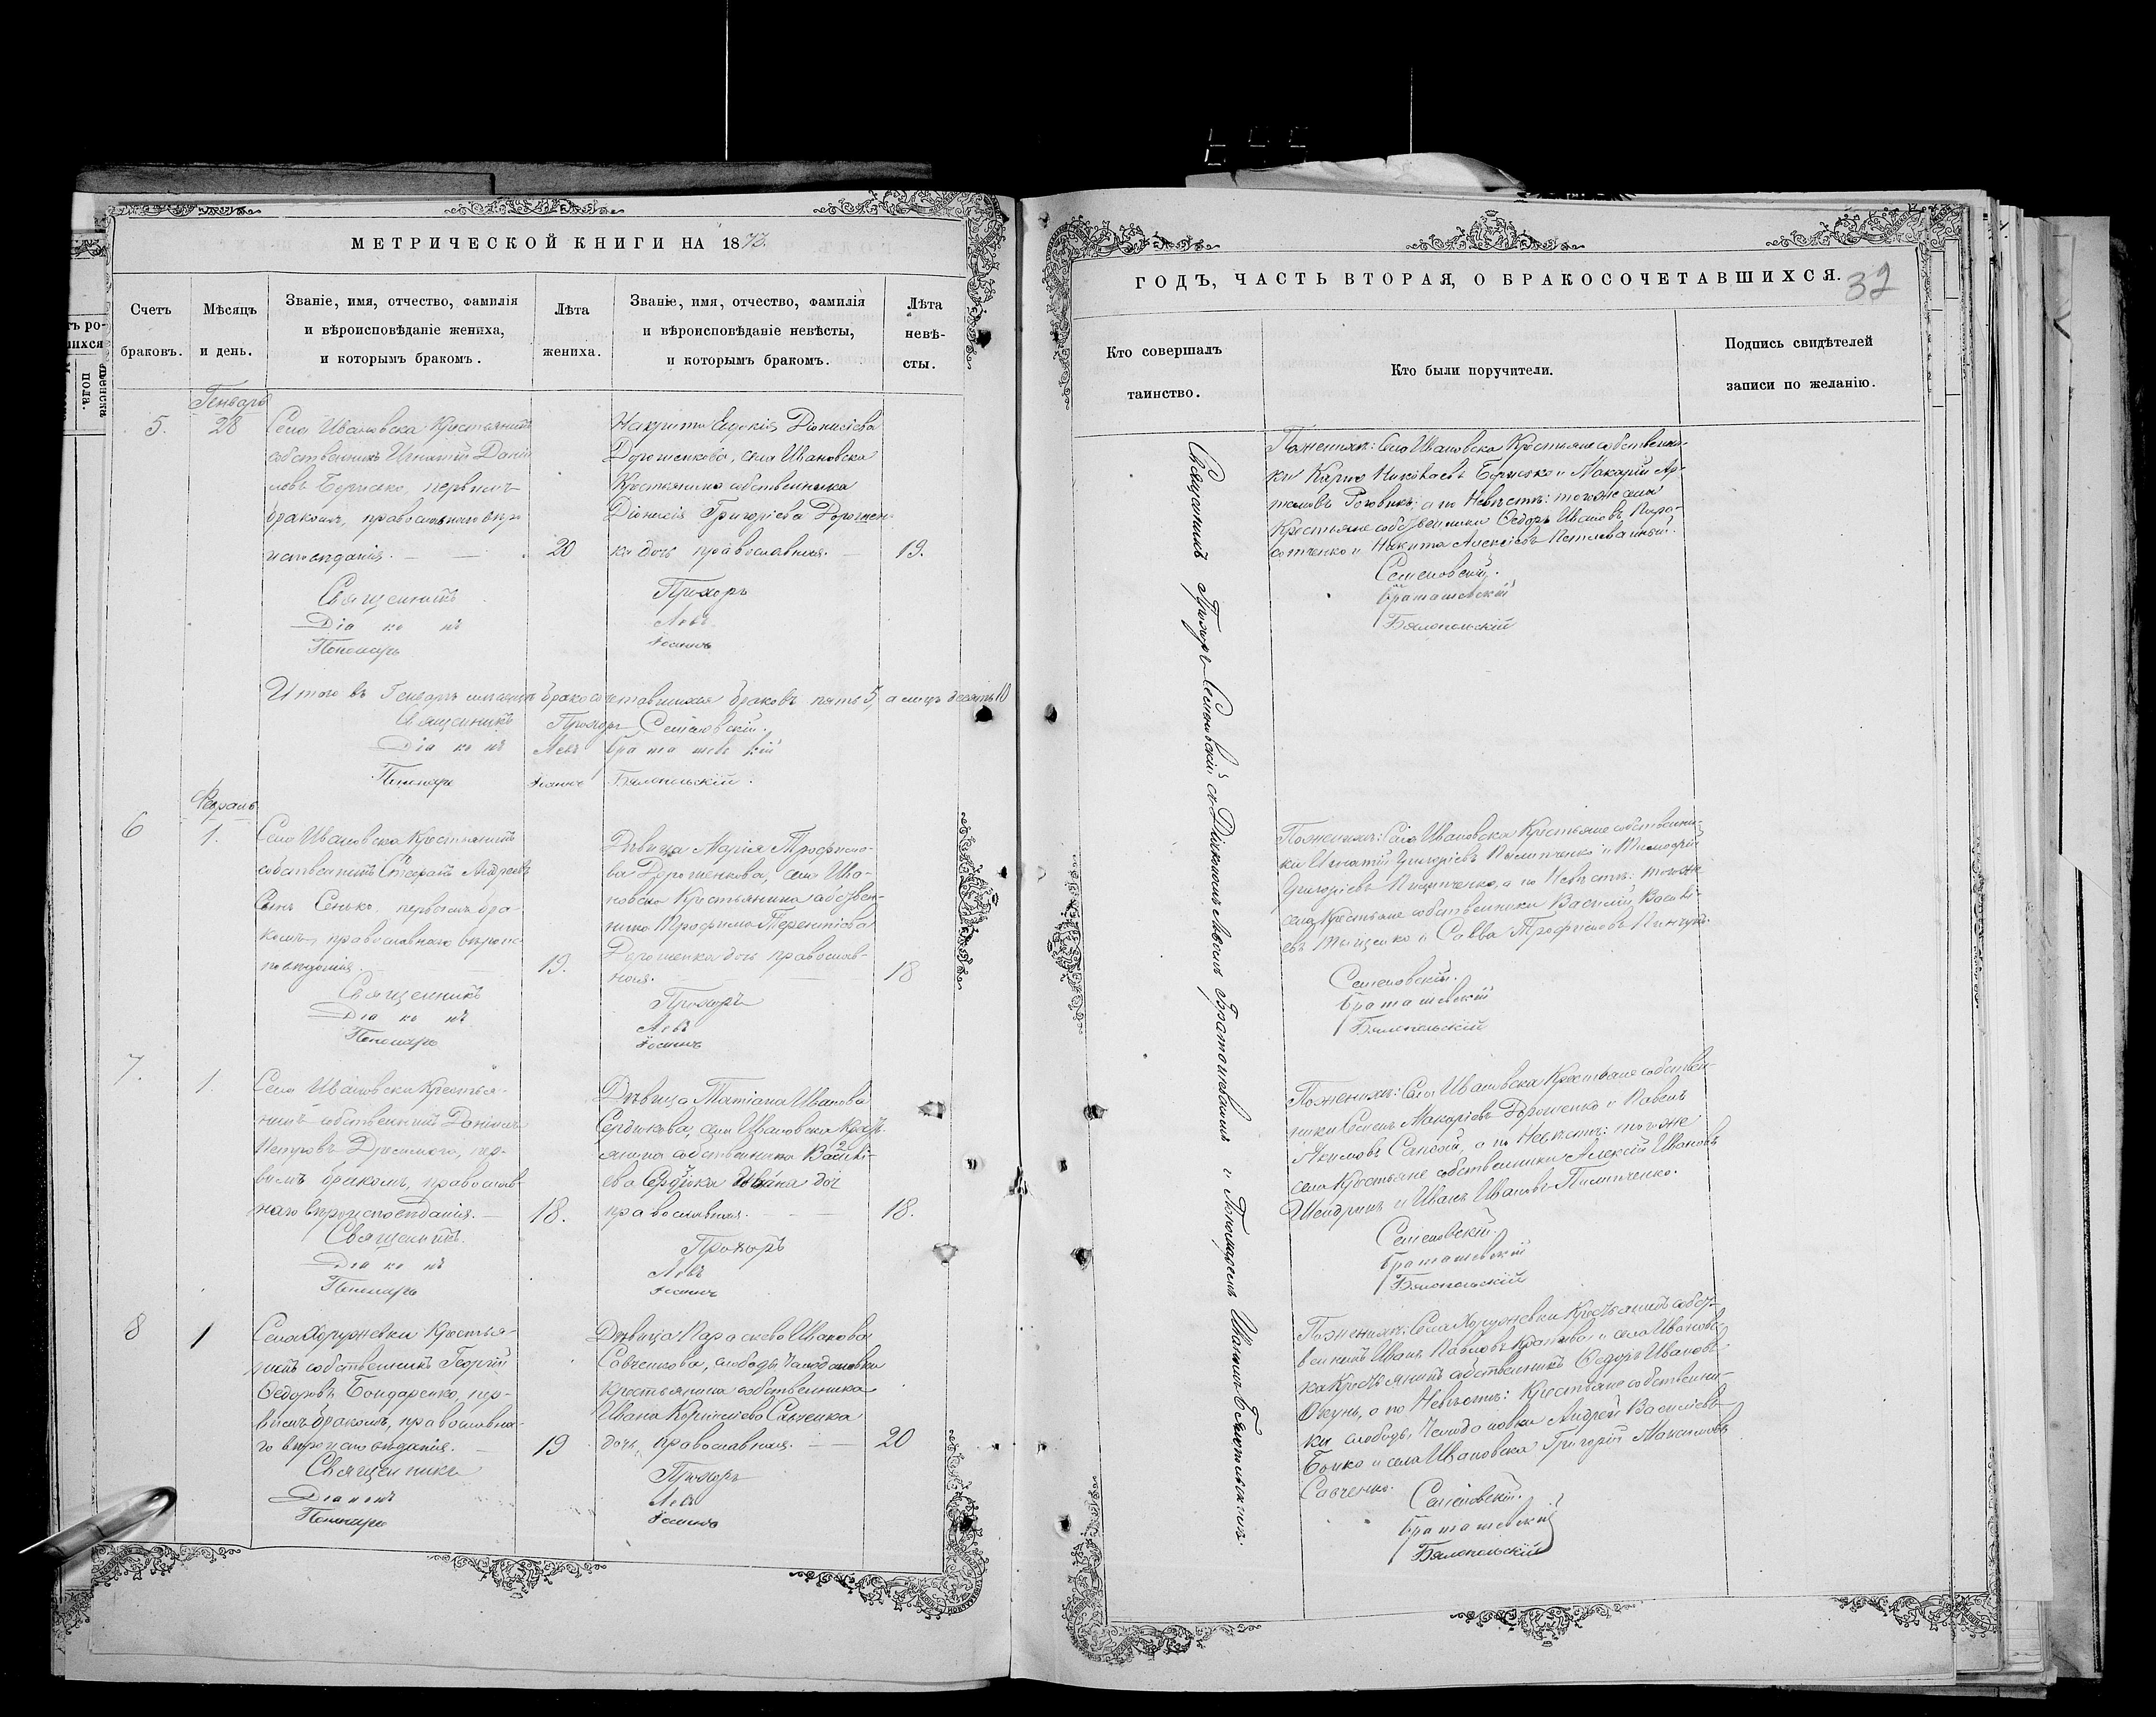 МЕТРИЧЕСКОЙ КНИГИ НА 1873.
Счетъ браковъ.
Мѣсяцъ и день.
Званіе, имя, отчество, фамилія
и вѣроисповѣданіе жениха,
и которымъ бракомъ.
Лѣта жениха.
Званіе, имя, отчество, фамилія
и вѣроисповѣданіе невѣсты,
и которымъ бракомъ.
Лѣта невѣ-
сты.
Генварь
5.
28
Села Ивановска Крестьянинъ
собственникъ Игнатій Дани
ловъ первымъ
бракомъ, православнаго вѣро
исповѣданія.
20
Евдокія Діонисіева
Дорошенкова, села Ивановска
Крестьянина собственника
Діонисія Григоріева Дорошен-
ка дочь православная.
19.
Священникъ Прохоръ
Діаконъ Левъ
Пономарь Іоаннъ
Итого въ Генварѣ мѣсяцѣ бракосочетавшихся браковъ пять 5, а лицъ десять 10
Священникъ Прохоръ Семеновскій.
Діаконъ Левъ Браташевскій
Пономарь Іоаннъ Бялопольскій.
Февраль
6
1.
Села Ивановска Крестьянинъ
собственникъ Стефанъ Андреевъ
Сынъ Сенько, первымъ бра-
комъ, православнаго вѣроис-
повѣданія.
19.
Дѣвица Марія Трофимо-
ва Дорошенкова, села Ива-
новска Крестьянина собствен-
ника Трофима Терентіева
Дорошенка дочь православ-
ная.
18
Священникъ Прохоръ
Діаконъ Левъ
Пономарь Іоаннъ
7.
1.
Села Ивановска Крестья-
нинъ собственникъ Даніилъ
Петровъ пер-
вымъ бракомъ, православ-
наго вѣроисповѣданія.
18.
Дѣвица Татіана Иванова
Сердюкова, села Ивановска Крест.
янина собственника Василі-
ева Сердюка Ивана доч
православная.
18.
Священникъ. Прохоръ
Діаконъ Левъ
Пономарь Іоаннъ
8
1
Села Хоружевки Крестья-
нинъ собственникъ Георгій
Ѳедоровъ Бондаренко, пер-
вымъ бракомъ, православна-
го вѣроисповѣданія.
19
Дѣвица Параскева Иванова
Савченкова, слободы
крестьянина собственника
Ивана Корниліева Савченка
дочь, православная.
20
Священникъ Прохоръ
Діаконъ Левъ
Пономарь Іоаннъ
ГОДЪ, ЧАСТЬ ВТОРАЯ, О БРАКОСОЧЕТАВШИХСЯ.
32
Кто совершалъ
таинство.
Кто были поручители.
Подпись свидѣтелей
записи по желанію.
Священникъ Прохоръ Семеновскій съ Діакономъ Львомъ Браташевскимъ и Пономаремъ Бялопольскимъ.
По женихѣ: Села Ивановска Крестьяне собственни-
ки Карпъ Николаевъ и Макарій Ар-
темовъ а по Невѣстѣ: тогоже села
Крестьяне собственники Ѳедоръ Ивановъ
и Никита Алексѣевъ
Семеновскій.
Браташевскій
Бялопольскій
По женихѣ: Села Ивановска Крестьяне собственни-
ки Игнатій Григоріевъ Пилипченко и Тимофей
Григоріевъ Пилипченко, а по Невѣстѣ: тогоже
села Крестьяне собственники Василій Василі-
евъ Тищенко и Савва Трофимовъ Пинчукъ.
Семеновскій.
Браташевскій
Бялопольскій
По женихѣ: Села Ивановска Крестьяне собствен-
ники Семенъ Макаріевъ Дорошенко и Павелъ
Якимовъ а по Невѣстѣ: тогоже
села Крестьяне собственники Алексѣй Ивановъ
и Иванъ Ивановъ Пилипченко.
Семеновскій.
Браташевскій
Бялопольскій
По женихѣ: Села Хоружевки Крестьянинъ собст-
венникъ Иванъ Павловъ и села Ивановс-
ка Крестьянинъ собственникъ Ѳедоръ Ивановъ
Окунь, а по Невѣстѣ: Крестьяне собственни-
ки слободы Андрей Василіевъ
и села Ивановска Григорій Максимовъ
Савченко.
Семеновскій.
Браташевскій
Бялопольскій